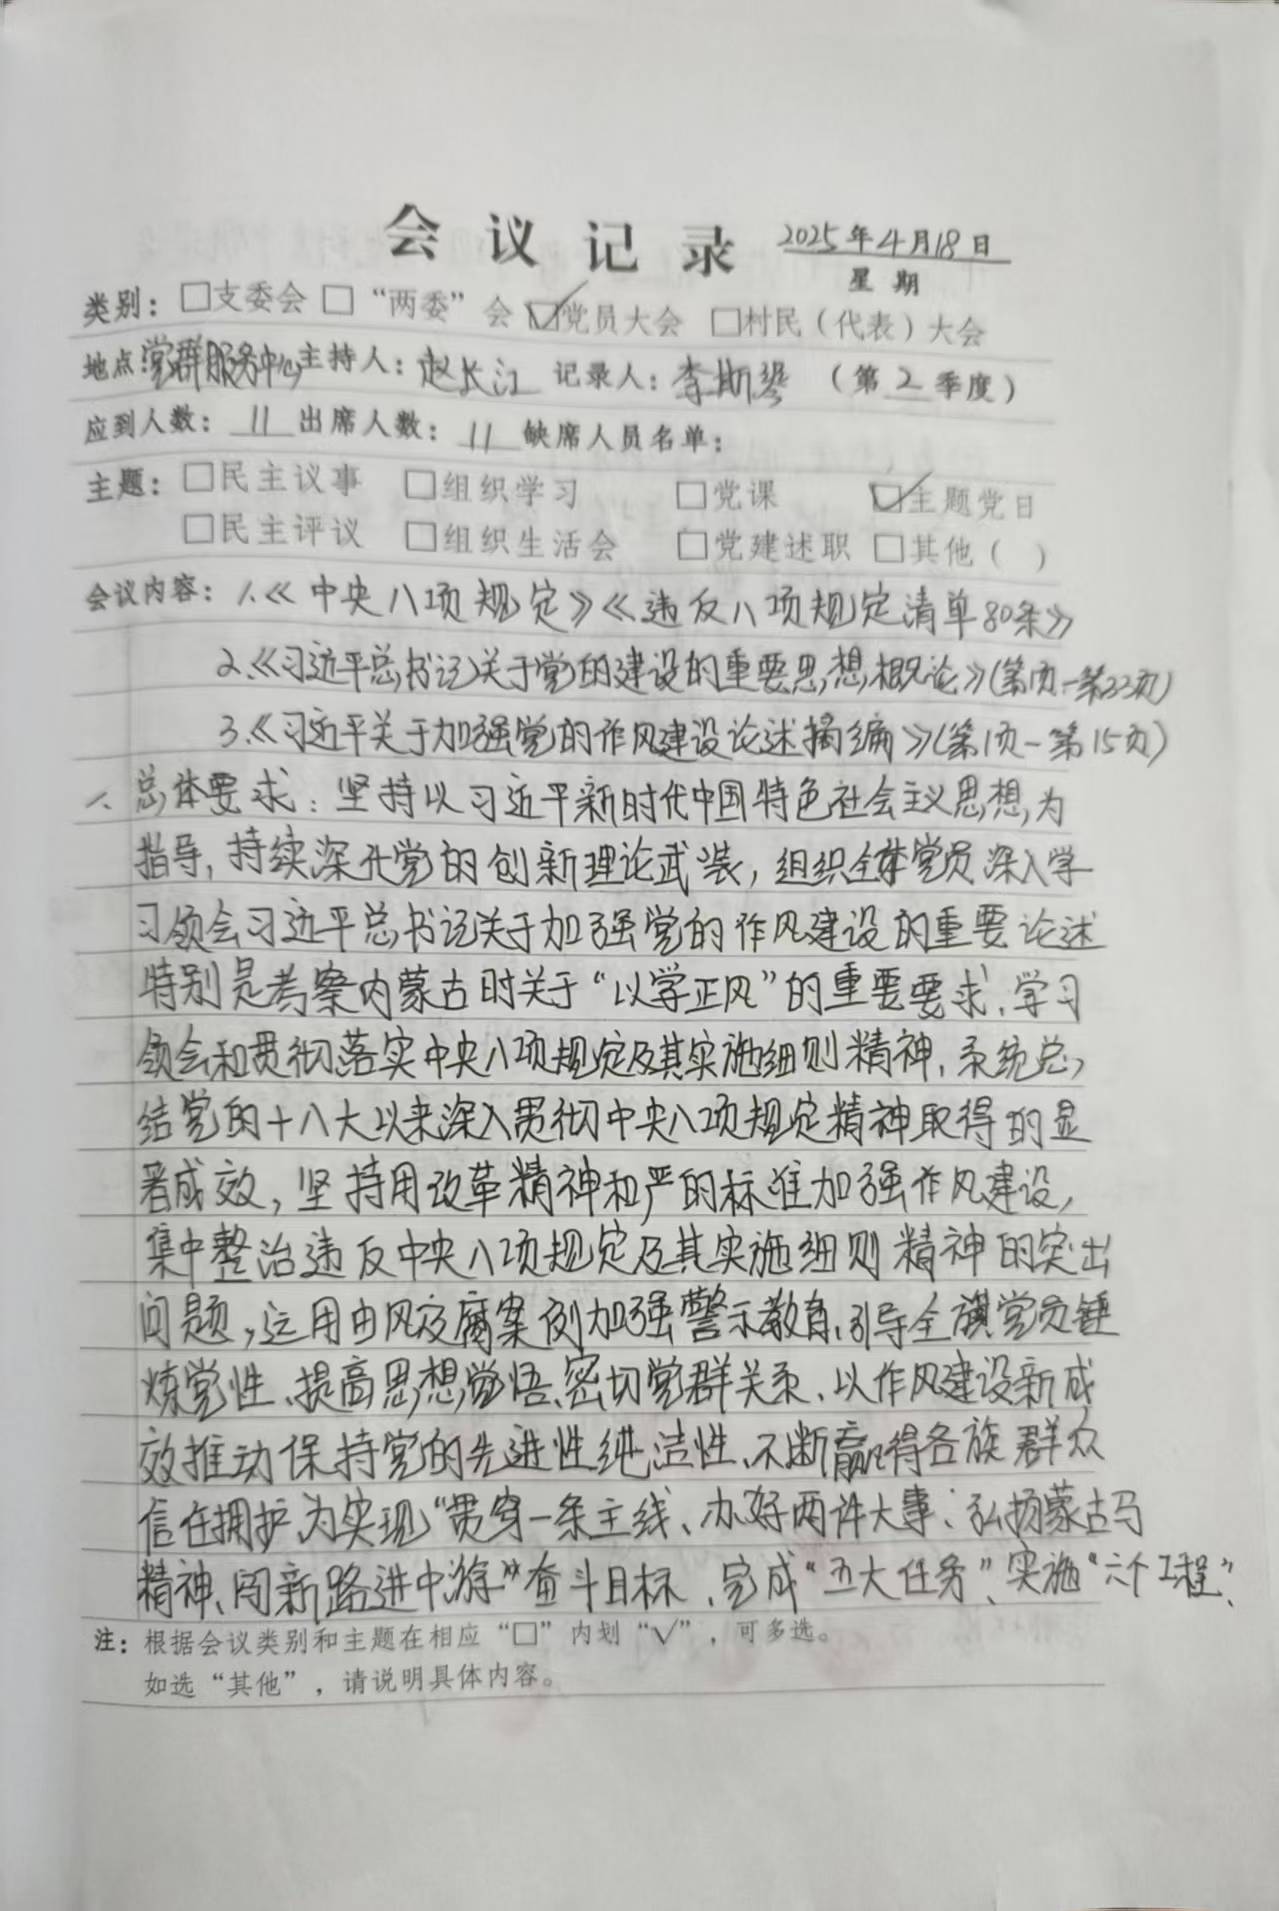 会议记录 2025年4月18日
星期
类别：□支委会 □“两委”会 ☑党员大会 □村民（代表）大会
地点：党群服务中心 主持人：赵长江 记录人：李斯琴 （第2季度）
应到人数：11 出席人数：11 缺席人员名单：
主题：□民主议事 □组织学习 □党课 ☑主题党日
□民主评议 □组织生活会 □党建述职 □其他（ ）
会议内容：1.《中央八项规定》《违反八项规定清单80条》
2.《习近平总书记关于党的建设的重要思想概论》(第1页-第23页)
3.《习近平关于加强党的作风建设论述摘编》(第1页-第15页)
一、总体要求：坚持以习近平新时代中国特色社会主义思想，为
指导，持续深化党的创新理论武装，组织全体党员深入学
习领会习近平总书记关于加强党的作风建设的重要论述
特别是考察内蒙古时关于“以学正风”的重要要求，学习
领会和贯彻落实中央八项规定及其实施细则精神，系统总
结党的十八大以来深入贯彻中央八项规定精神取得的显
著成效，坚持用改革精神和严的标准加强作风建设，
集中整治违反中央八项规定及其实施细则精神的突出
问题，运用由风及腐案例加强警示教育，引导全旗党员锤
炼党性、提高思想觉悟、密切党群关系，以作风建设新成
效推动保持党的先进性纯洁性、不断赢得各族群众
信任拥护，为实现“贯穿一条主线、办好两件大事、弘扬蒙古马
精神、闯新路进中游”奋斗目标、完成“五大任务”、实施“六个工程”、
注：根据会议类别和主题在相应“□”内划“√”，可多选。
如选“其他”，请说明具体内容。